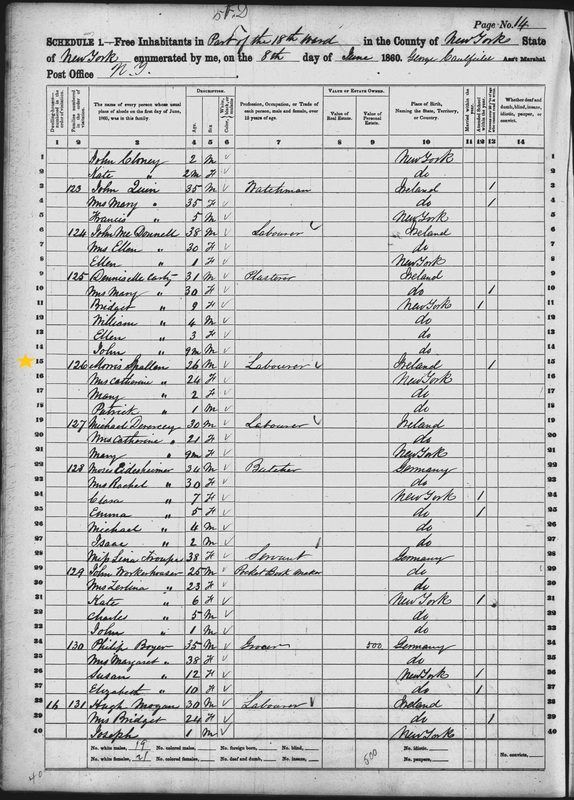 Page No. 14
SCHEDULE 1.—Free Inhabitants in Part of the 18th Ward in the County of New York State
of New York enumerated by me, on the 8th day of June 1860. George Ass't Marshal.
Post Office N.Y.
DESCRIPTION. VALUE OF ESTATE OWNED.
The name of every person whose usual place of abode on the first day of June, 1860, was in this family. Age. Sex. Profession, Occupation, or Trade of each person, male and female, over 15 years of age. Value of Real Estate. Value of Personal Estate. Place of Birth, Naming the State, Territory, or Country. Married within the year. Attended School within the year. Whether deaf and dumb, blind, insane, idiotic, pauper, or convict.
1 2 3 4 5 6 7 8 9 10 11 12 13 14
1 John Cloney 2 M New York
2 Kate " 2m F do
3 123 John Quin 35 M Watchman Ireland 1
4 Mrs Mary " 35 F do 1
5 Francis " 5 M New York
6 124 John McDonnell 38 M Labourer Ireland
7 Mrs Ellen " 30 F do
8 Ellen " 1 F New York
9 125 Dennis McCarty 31 M Plasterer Ireland
10 Mrs Mary " 30 F do 1
11 Bridget " 9 F New York 1
12 William " 4 M do
13 Ellen " 3 F do
14 John " 9m M do
15 126 Morris Spallen 26 M Labourer Ireland 1
16 Mrs Catherine " 24 F New York
17 Mary " 2 F do
18 Patrick " 1 M do
19 127 Michael 30 M Labourer Ireland
20 Mrs Catherine " 21 F do
21 Mary " 9m F New York
22 128 Moses Eidesheimer 34 M Butcher Germany
23 Mrs Rachel " 30 F do
24 Clara " 7 F New York 1
25 Emma " 5 F do 1
26 Michael " 4 M do
27 Isaac " 2 M do
28 Miss Lina 38 F Servant Germany
29 129 John 25 M Pocket Book Maker do
30 Mrs " 23 F do
31 Kate " 6 F New York 1
32 Charles " 5 M do
33 John " 1 M do
34 130 Philip Boyer 35 M Grocer 500 Germany
35 Mrs Margaret " 38 F do
36 Susan " 12 F New York 1
37 Elizabeth " 10 F do 1
38 16 131 Hugh Mogan 30 M Labourer Ireland
39 Mrs Bridget 24 F do 1
40 Joseph 1 M New York
No. white males, 19 No. colored males, No. foreign born, No. blind, 500 No. idiotic, No. convicts,
No. white females, 21 No. colored females, No. deaf and dumb, No. insane, No. paupers,
40